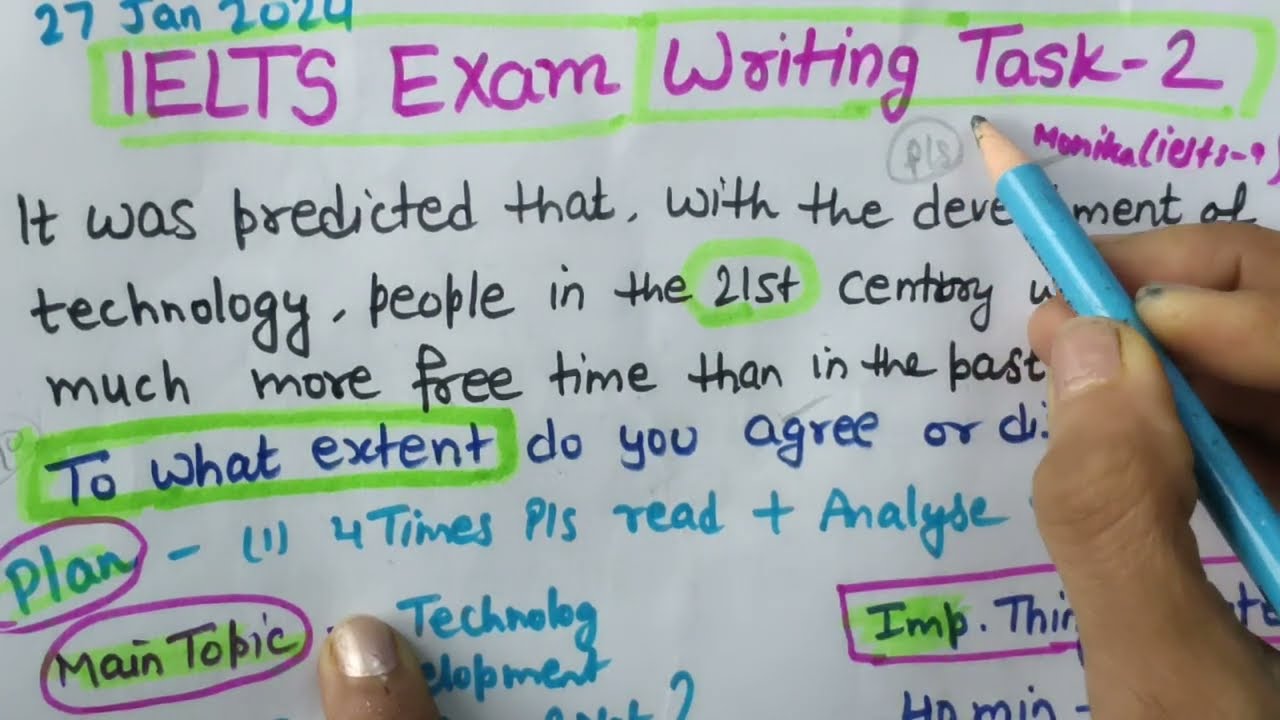 27 Jan 2024
IELTS Exam Writing Task-2
pls
Monika(ielts-9)
It was predicted that, with the development of
technology, people in the 21st century
much more free time than in the past
To what extent do you agree or
Plan - (1) 4 Times Pls read + Analyse
Main Topic - Technolog
elopment
Imp.
40 min -